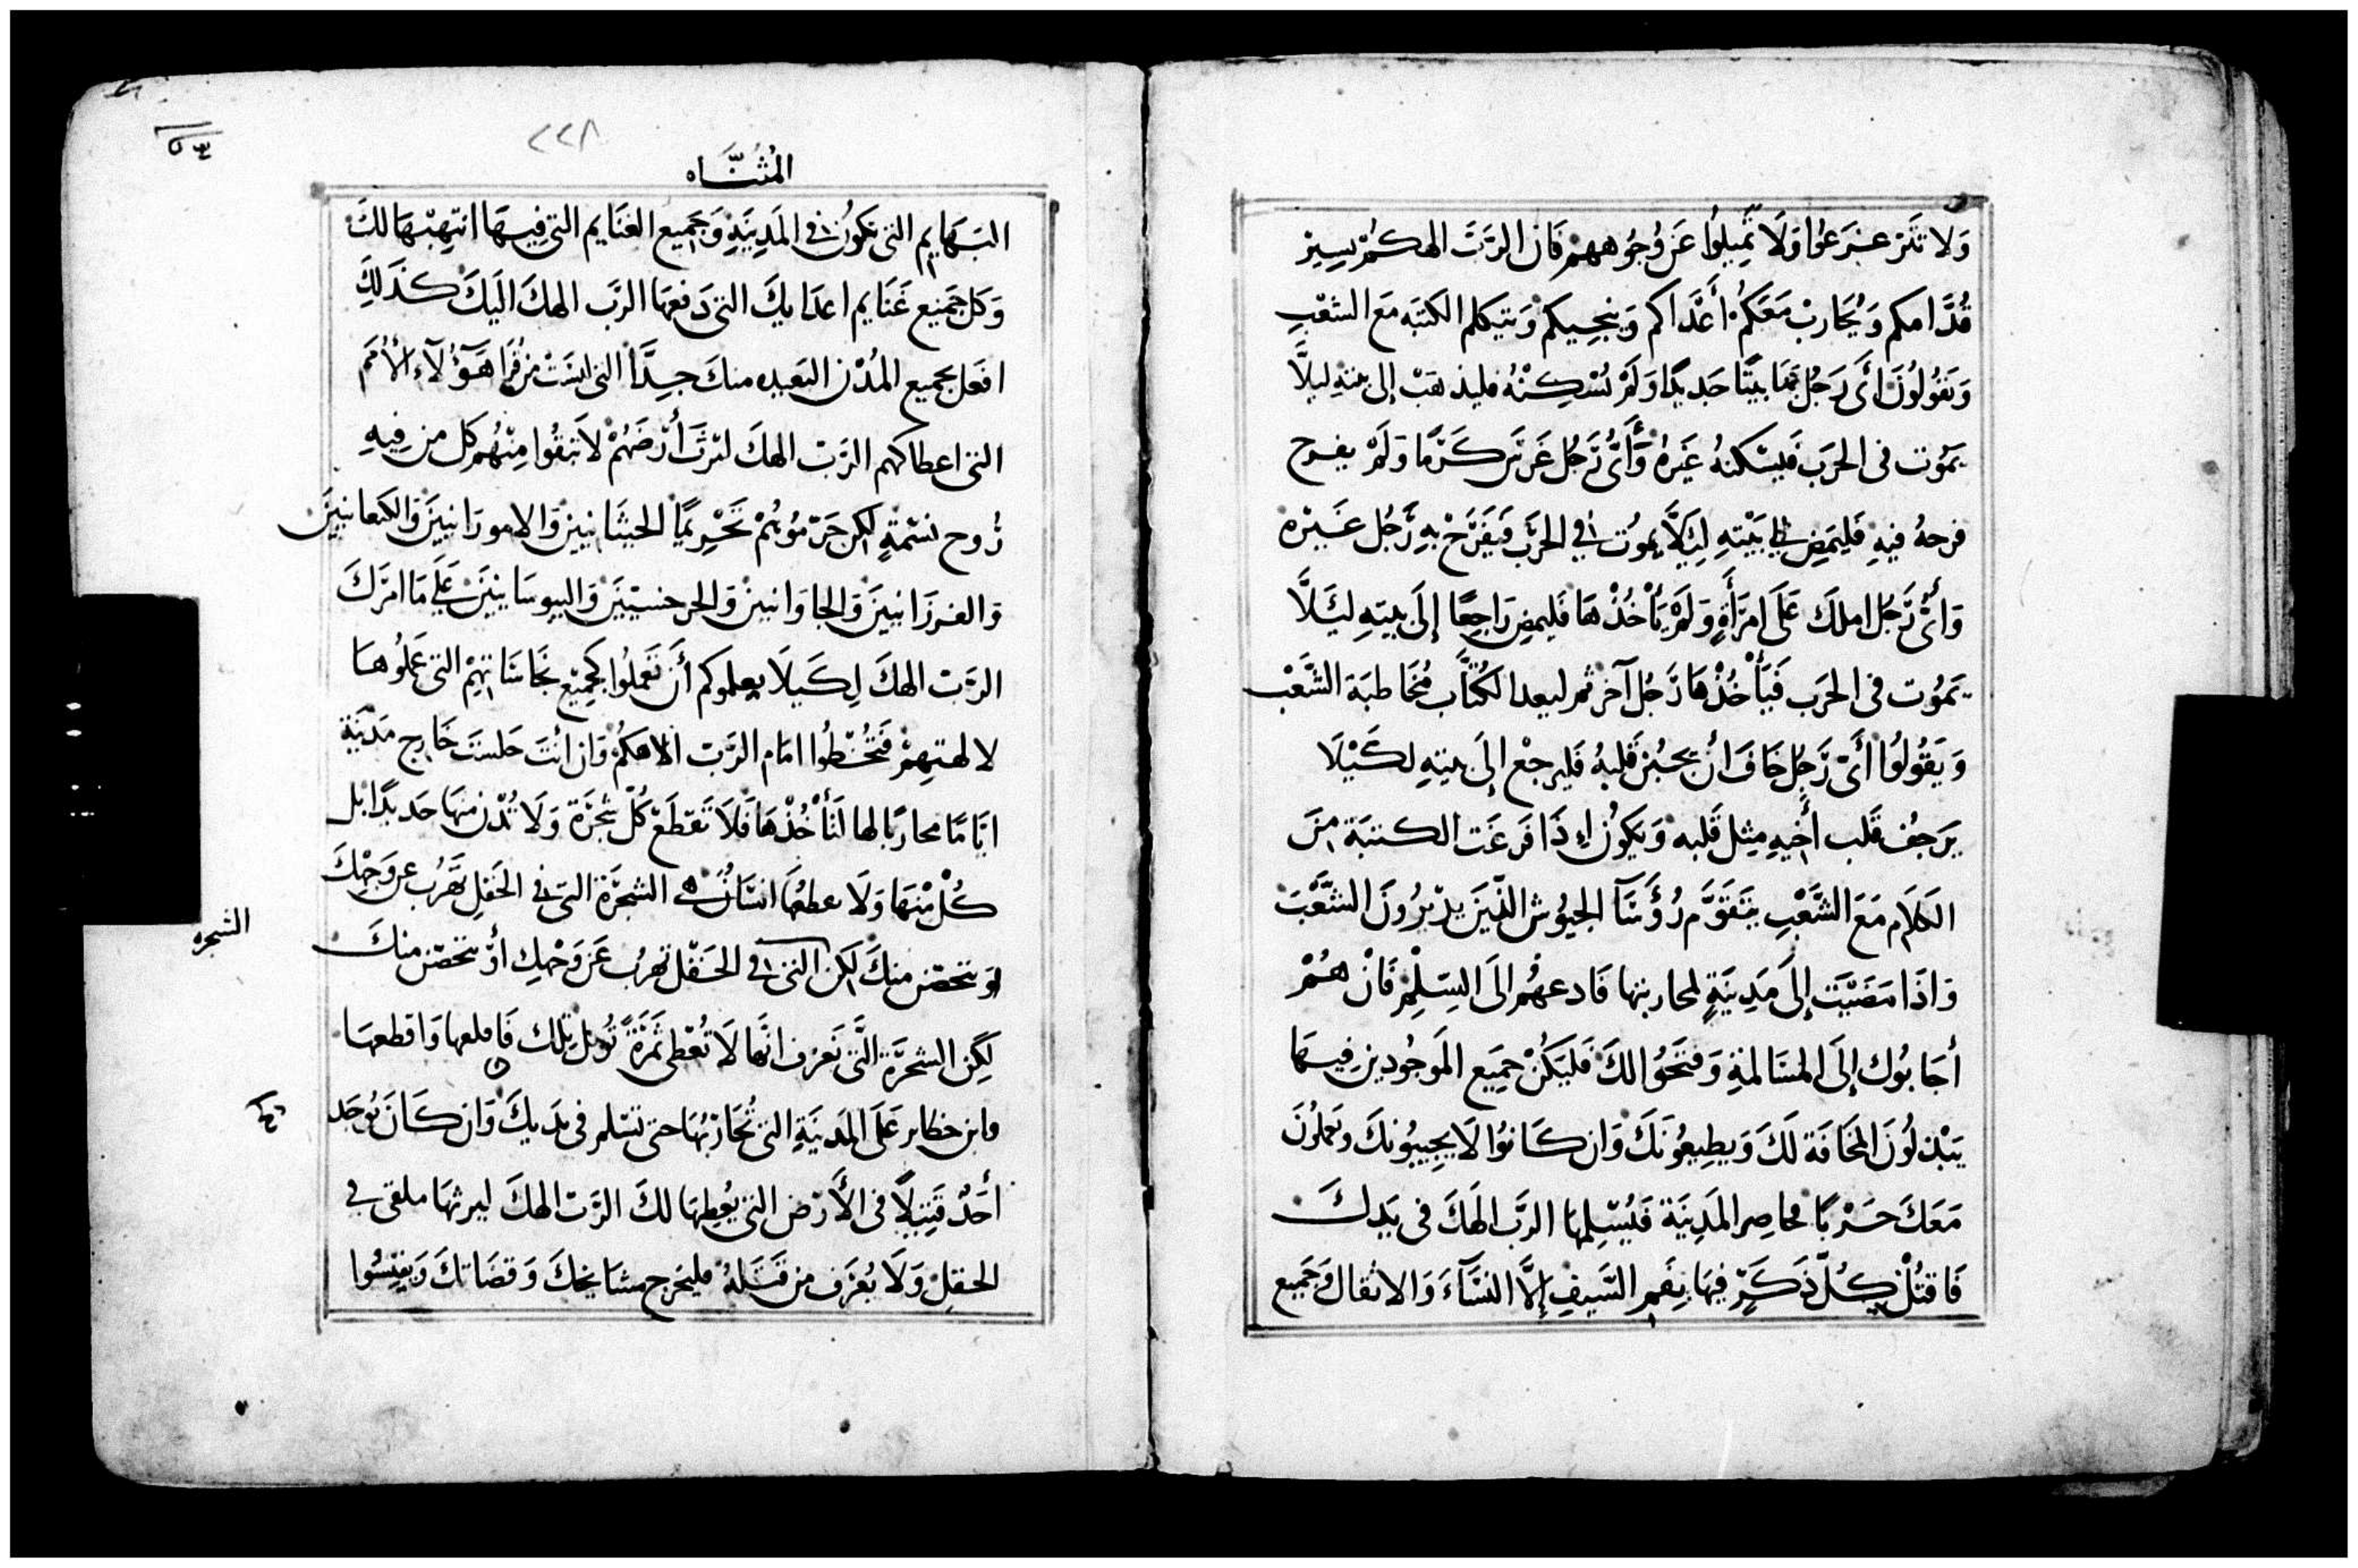 ولا تتزعزعوا ولا تميلوا عن وجوههم فان الرب الهكم يسير
قدامكم ويحارب معكم أعداكم وينجيكم ويتكلم الكتبه مع الشعب
ويقولون أي رجل بنا بيتا جديدا ولم يسكنه فليذهب إلى بيته ليلا
يموت في الحرب فيسكنه غيره وأي رجل غرس كرما ولم يفرح
فرحه فيه فليمض إلى بيته ليلا يموت في الحرب فيفرح به رجل غيره
وأي رجل املك على امرأة ولم يأخذها فليمض راجعا إلى بيته ليلا
يموت في الحرب فيأخذها رجل آخر ثم ليعد الكتاب مخاطبة الشعب
ويقولوا أي رجل خاف ان يجبن قلبه فليرجع إلى بيته لكيلا
يرجف قلب أخيه مثل قلبه ويكون إذا فرغت الكتبة من
الكلام مع الشعب يتقوم رؤسآ الجيوش الذين يدبرون الشعب
واذا مضيت إلى مدينة لمحاربتها فادعهم إلى السلم فان هم
أجابوك إلى المسالمة وفتحوا لك فليكن جميع الموجودين فيها
يبذلون المخافة لك ويطيعونك وان كانوا لا يجيبونك ويعملون
معك حربا فحاصر المدينة فيسلمها الرب الهك في يدك
فاقتل كل ذكر فيها بفم السيف إلا النسآء والاثقال وجميع
٢٢٨
المثناه
البهايم التي تكون في المدينة وجميع الغنايم التي فيها انتهبها لك
وكل جميع غنايم اعدايك التي دفعها الرب الهك اليك كذلك
افعل بجميع المدن البعيده منك جدا التي ليست من قرا هؤلآء الأمم
التي اعطاكهم الرب الهك لترث أرضهم لا تبقوا منهم كل من فيه
روح نسمة لكن جرموهم تحريما الحيثانيين والامورانيين والكنعانيين
والفرزانيين والجاوانيين والجرجسيين واليبوسانيين على ما امرك
الرب الهك لكيلا يعلموكم أن تعملوا كجميع نجاساتهم التي عملوها
لالهتهم فتخطوا امام الرب الاهكم وان أنت جلست خارج مدينة
اياما محاربا لها لتأخذها فلا تقطع كل شجرة ولا تدن منها حديدا بل
كل منها ولا تقطعها انسان هي الشجرة التي في الحقل تهرب عن وجهك
او يتحصن منك لكن التي في الحقل تهرب عن وجهك أو تتحصن منك
الشجره
لكن الشجرة التي تعرف انها لا تعطي ثمرة تؤكل تلك فاقلعها واقطعها
وابن حظاير على المدينة التي تحاربها حتى تسلم في يديك وان كان يوجد
أحد قتيلا في الأرض التي يعطيها لك الرب الهك ليرثها ملقى في
الحقل ولا يعرف من قتله فليخرج مشايخك وقضاتك ويقيسوا